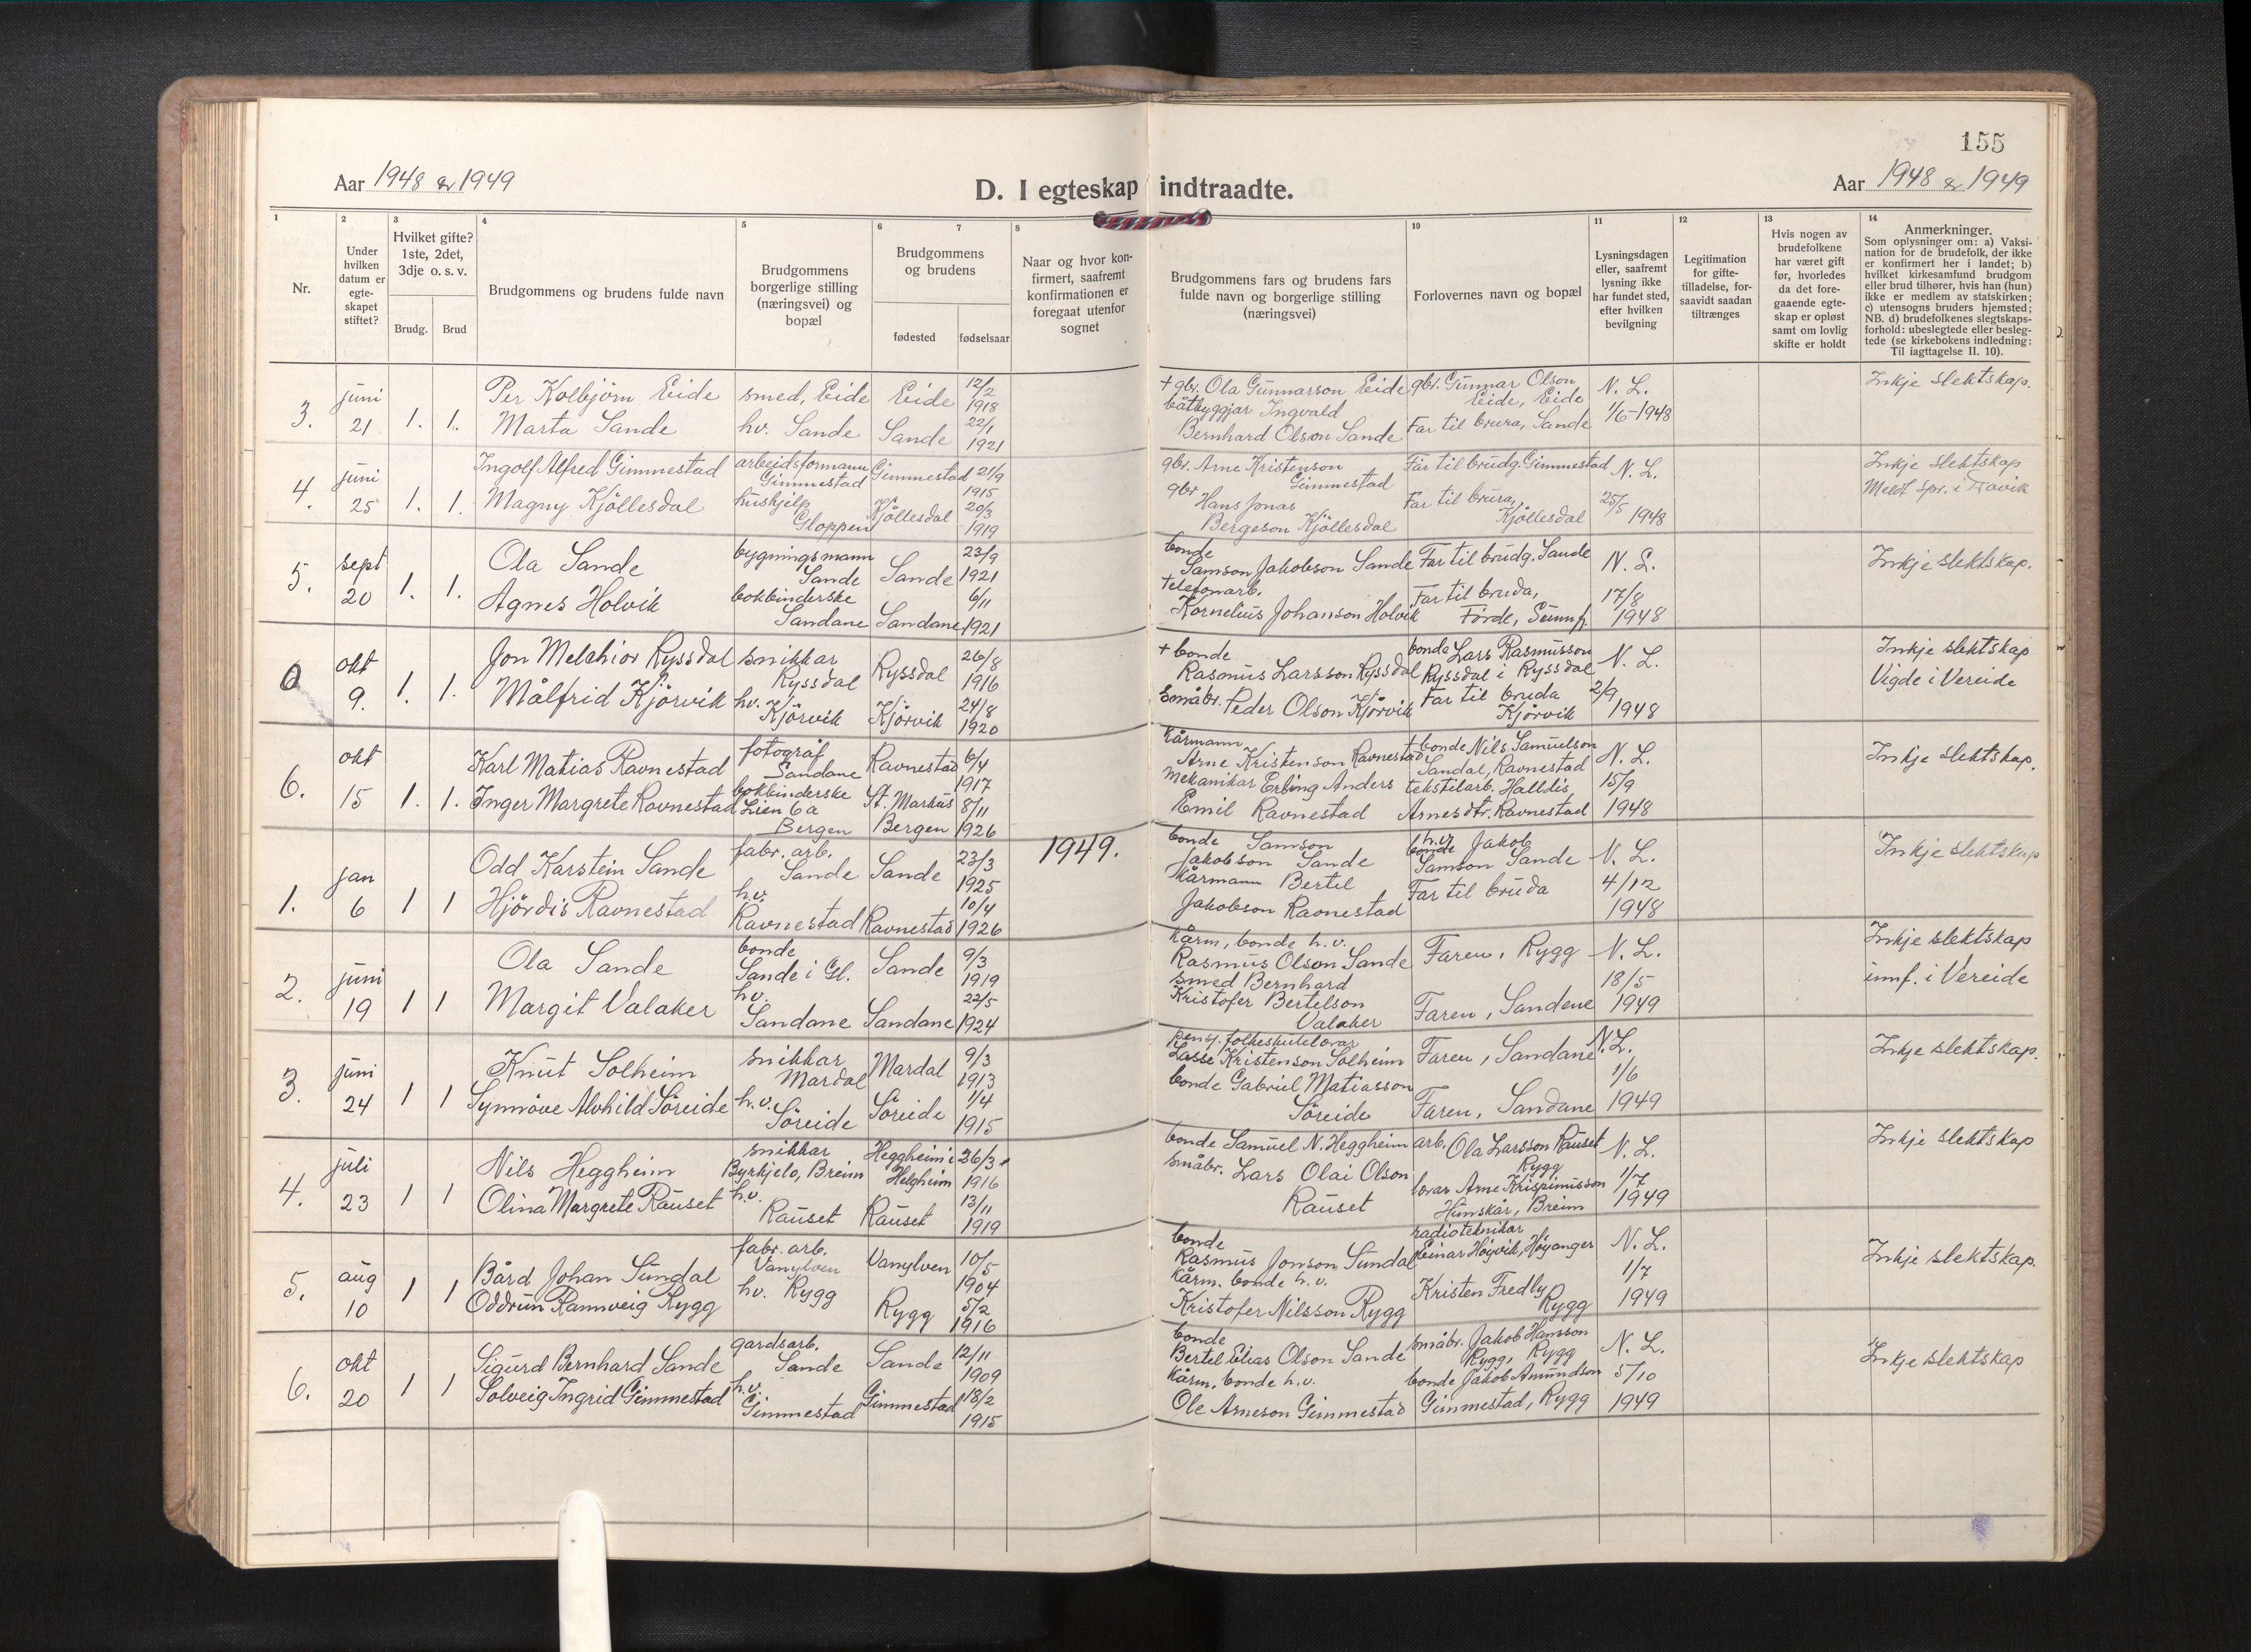 155
Aar 1948 og 1949
D. I egteskap indtraadte.
Aar 1948 og 1949
1
Nr.
2
Under hvilken datum er egte-skapet stiftet?
3
Hvilket gifte? 1ste, 2det, 3dje o. s. v.
Brudg.
Brud
4
Brudgommens og brudens fulde navn
5
Brudgommens borgerlige stilling (næringsvei) og bopæl
6
7
Brudgommens og brudens
fødested
fødselsaar
8
Naar og hvor kon-firmert, saafremt konfirmationen er foregaat utenfor sognet
Brudgommens fars og brudens fars fulde navn og borgerlige stilling (næringsvei)
10
Forlovernes navn og bopæl
11
Lysningsdagen eller, saafremt lysning ikke har fundet sted, efter hvilken bevilgning
12
Legitimation for gifte-tilladelse, for-saavidt saadan tiltrænges
13
Hvis nogen av brudefolkene har været gift før, hvorledes da det fore-gaaende egte-skap er opløst samt om lovlig skifte er holdt
14
Anmerkninger.
Som oplysninger om: a) Vaksi-nation for de brudefolk, der ikke er konfirmert her i landet; b) hvilket kirkesamfund brudgom eller brud tilhører, hvis han (hun) ikke er medlem av statskirken; c) utensogns bruders hjemsted; NB. d) brudefolkenes slegtskaps-forhold: ubeslegtede eller besleg-tede (se kirkebokens indledning: Til iagttagelse II. 10).
3. juni 21 1. 1.
Per Kolbjörn Eide smed, Eide Eide 12/2 1918
Marta Sande hv. Sande Sande 22/1 1921
+ gbr. Ola Gunnarson Eide gbr. Gunnar Olson, Eide, Eide
båtbyggjar Ingvald Bernhard Olson Sande Far til brura, Sande
N. L. 1/6-1948
Inkje slektskap.
4. juni 25 1. 1.
Ingolf Alfred Gimmestad arbeidsformann Gimmestad Gimmestad 21/9 1915
Magny Kjöllesdal hushjelp Gloppen Kjöllesdal 20/3 1919
gbr. Arne Kristenson Gimmestad Far til brudg. Gimmestad
gbr Hans Jonas Bergeson Kjöllesdal Far til brura, Kjöllesdal
N. L. 25/5 1948
Inkje slektskap
5. sept 20 1. 1.
Ola Sande bygningsmann Sande Sande 23/9 1921
Agnes Holvik bokbinderske Sandane Sandane 6/11 1921
bonde Samson Jakobson Sande Far til brudg. Sande
telefonarb. Kornelius Johanson Holvik Far til bruda, Förde, Sunnf.
N. L. 17/8 1948
Inkje slektskap.
0 okt 9. 1. 1.
Jon Melchior Ryssdal snikkar Ryssdal Ryssdal 26/8 1916
Målfrid Kjörvik hv. Kjörvik Kjörvik 24/8 1920
+ bonde Rasmus Larsson Ryssdal bonde Lars Rasmusson Ryssdal i Ryssdal
småbr. Peder Olson Kjörvik Far til bruda Kjörvik
N. L. 2/9 1948
Inkje slektskap
Vigde i Vereide
6. okt 15 1. 1.
Karl Matias Ravnestad fotograf Sandane Ravnestad 6/4 1917
Inger Margrete Ravnestad bokbinderske Lien 6a Bergen St. Markus Bergen 8/11 1926
kårmann Arne Kristenson Ravnestad + bonde Nils Samuelson Sandal, Ravnestad
mekanikar Erling Anders Emil Ravnestad tekstilarb. Halldis Arnesdtr. Ravnestad
N. L. 15/9 1948
Inkje slektskap.
1949.
1. jan 6 1 1
Odd Karstein Sande fabr. arb. Sande Sande 23/3 1925
Hjördis Ravnestad h.v. Ravnestad Ravnestad 10/4 1926
bonde Samson Jakobson Sande Jakob Samson Sande
kårmann Bertel Jakobson Ravnestad Far til bruda
N. L. 4/12 1948
Inkje slektskap
2. juni 19 1 1
Ola Sande bonde Sande i Gl. Sande 9/3 1919
Margit Valaker h.v. Sandane Sandane 22/5 1924
kårm, bonde h. v. Rasmus Olson Sande Faren, Rygg
smed Bernhard Kristofer Bertelson Valaker Faren, Sandene
N. L. 18/5 1949
Inkje slektskap
innf. i Vereide
3. juni 24 1 1
Knut Solheim snikkar Mardal Mardal 9/3 1913
Synnöve Alvhild Söreide h.v. Söreide Söreide 1/4 1915
pensj. folkeskulelærar Lasse Kristenson Solheim Faren, Sandane
bonde Gabriel Matiasson Söreide Faren, Sandane
N. L. 1/6 1949
Inkje slektskap.
4. juli 23 1 1
Nils Heggheim snikkar Byrkjelo, Breim Heggheim i Helgheim 26/3 1916
Olina Margrete Rauset h.v. Rauset Rauset 13/11 1919
bonde Samuel N. Heggheim arb. Ola Larsson Rauset Rygg
småbr. Lars Olai Olson Rauset lærar Arne Krispinusson Hunskår, Breim
N. L. 1/7 1949
Inkje slektskap
5. aug 10 1 1
Bård Johan Sundal fabr. arb. Vanylven Vanylven 10/5 1904
Oddrun Rannveig Rygg hv. Rygg Rygg 5/2 1916
bonde Rasmus Jonson Sundal radioteknikar Einar Höyvik, Höyanger
kårm. bonde h. v. Kristofer Nilsson Rygg Kristen Fredly Rygg
N. L. 1/7 1949
Inkje slektskap.
6. okt 20 1 1
Sigurd Bernhard Sande gardsarb. Sande Sande 12/11 1909
Solveig Ingrid Gimmestad h.v. Gimmestad Gimmestad 18/2 1915
bonde Bertel Elias Olson Sande småbr. Jakob Hansson Rygg, Rygg
kårm, bonde h. v. Ole Arneson Gimmestad bonde Jakob Amundson Gimmestad, Rygg
N. L. 5/10 1949
Inkje slektskap